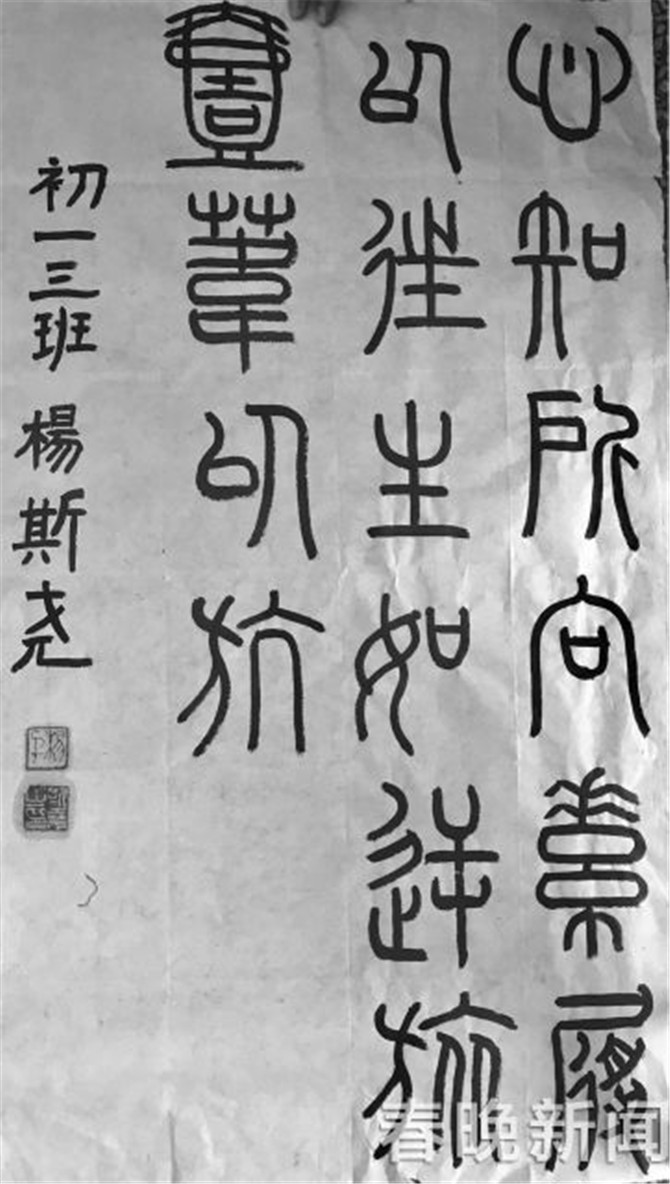 心知所向素履
以往生如逆旅
壹葦以航
初一三班 楊斯尧
春晚新闻